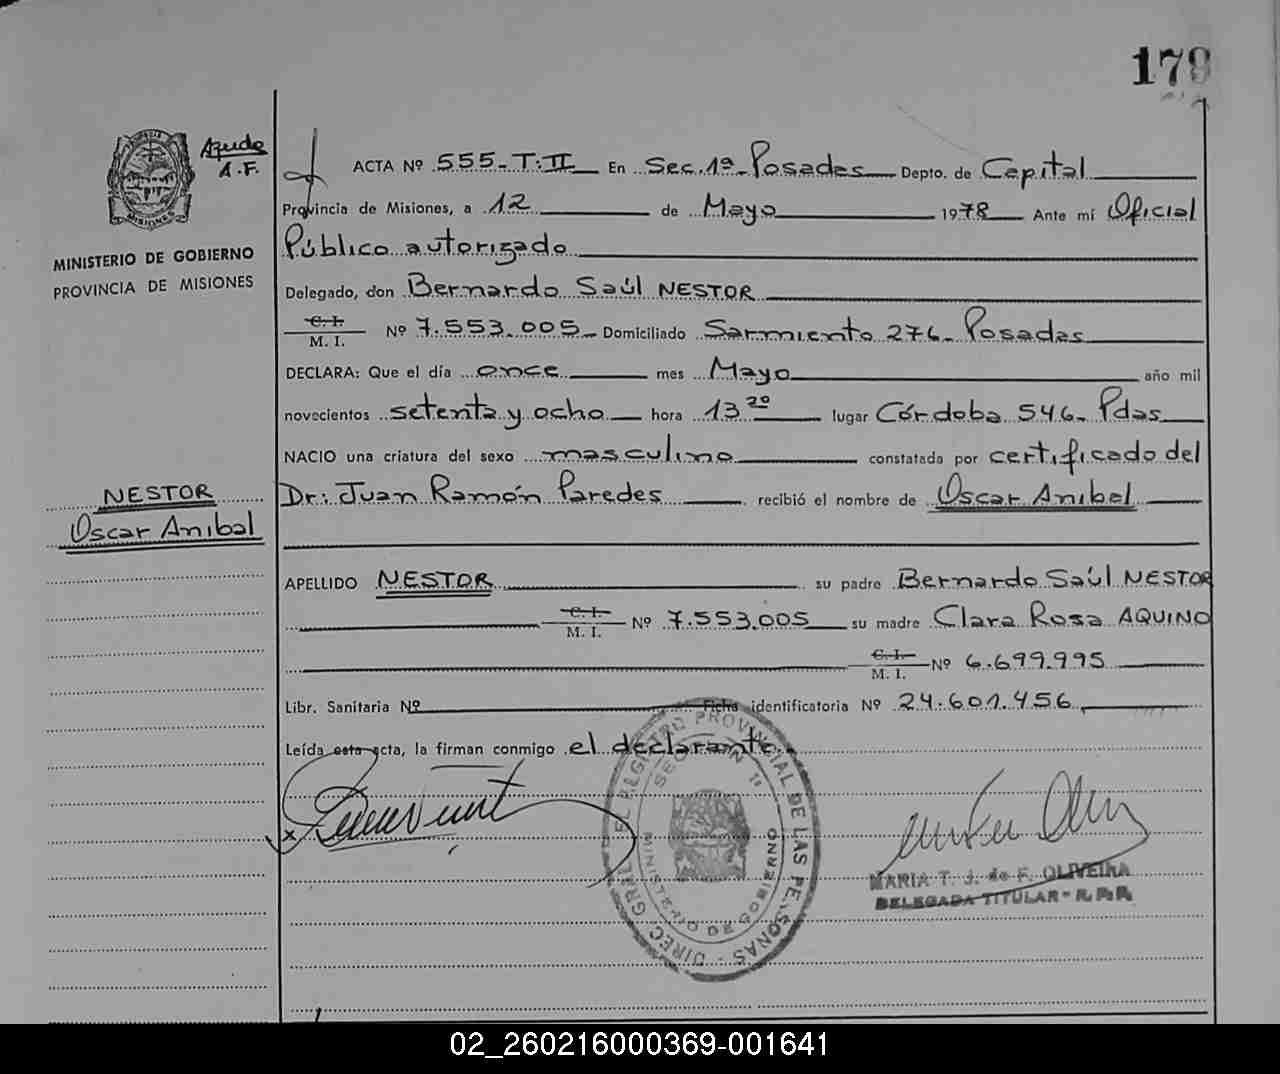 179
Agudo
A.F.
PROVINCIA
MISIONES
MINISTERIO DE GOBIERNO
PROVINCIA DE MISIONES
NESTOR
Oscar Anibal
ACTA Nº 555-T:II En Sec.1ª Posadas Depto. de Capital
Provincia de Misiones, a 12 de Mayo 1978 Ante mí Oficial
Público autorizado
Delegado, don Bernardo Saúl NESTOR
C. I.
M. I. Nº 7.553.005 Domiciliado Sarmiento 276- Posadas
DECLARA: Que el día once mes Mayo año mil
novecientos setenta y ocho hora 13 20 lugar Córdoba 546- Pdas
NACIO una criatura del sexo masculino constatada por certificado del
Dr: Juan Ramón Paredes recibió el nombre de Oscar Anibal
APELLIDO NESTOR su padre Bernardo Saúl NESTOR
C. I.
M. I. Nº 7.553.005 su madre Clara Rosa AQUINO
C. I.
M. I. Nº 6.699.995
Libr. Sanitaria Nº Ficha identificatoria Nº 24.601.456
Leída esta acta, la firman conmigo el declarante.
DIREC. GRAL. REGISTRO PROVINCIAL DE LAS PERSONAS
SECCION 1ª
MINISTERIO DE GOBIERNO
MARIA T. J. de F. OLIVEIRA
DELEGADA TITULAR - R.P.P.
02_260216000369-001641